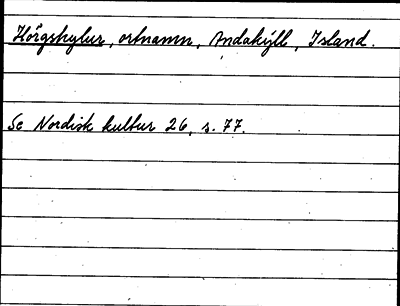 Hörgshylur, ortnamn, Andakýll, Island.
Se Nordisk kultur 26, s. 77.